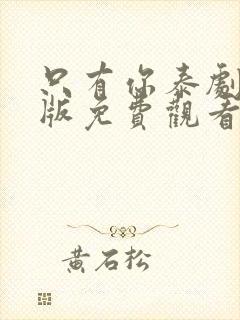 只有你泰劇
版免費觀看
黃石松